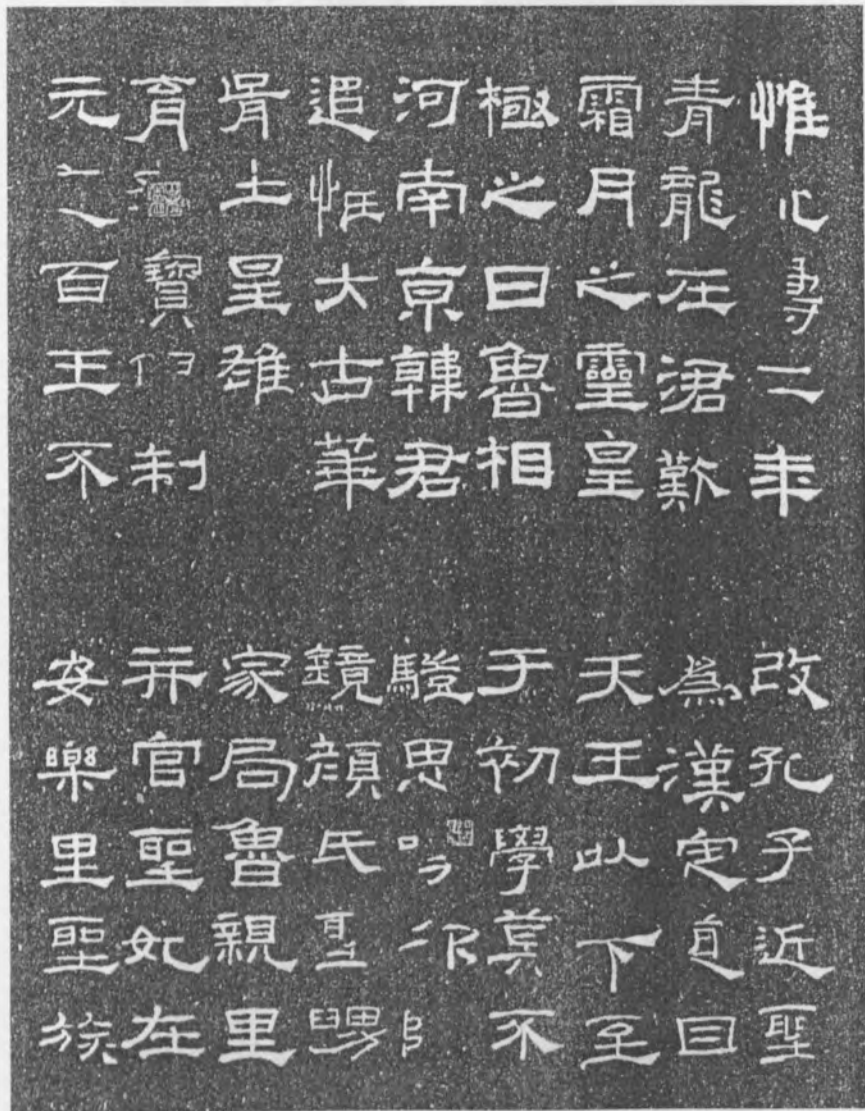 惟永壽二年
青龍在涒歎
霜月之靈皇
極之日魯相
河南京韓君
追惟大古華
胥生皇雄
育寶俱制
元百王不
改孔子近聖
為漢定道自
天王以下至
于初學莫不
驥思卬
鏡顏氏聖舅
家居魯親里
并官聖妃在
安樂里聖族